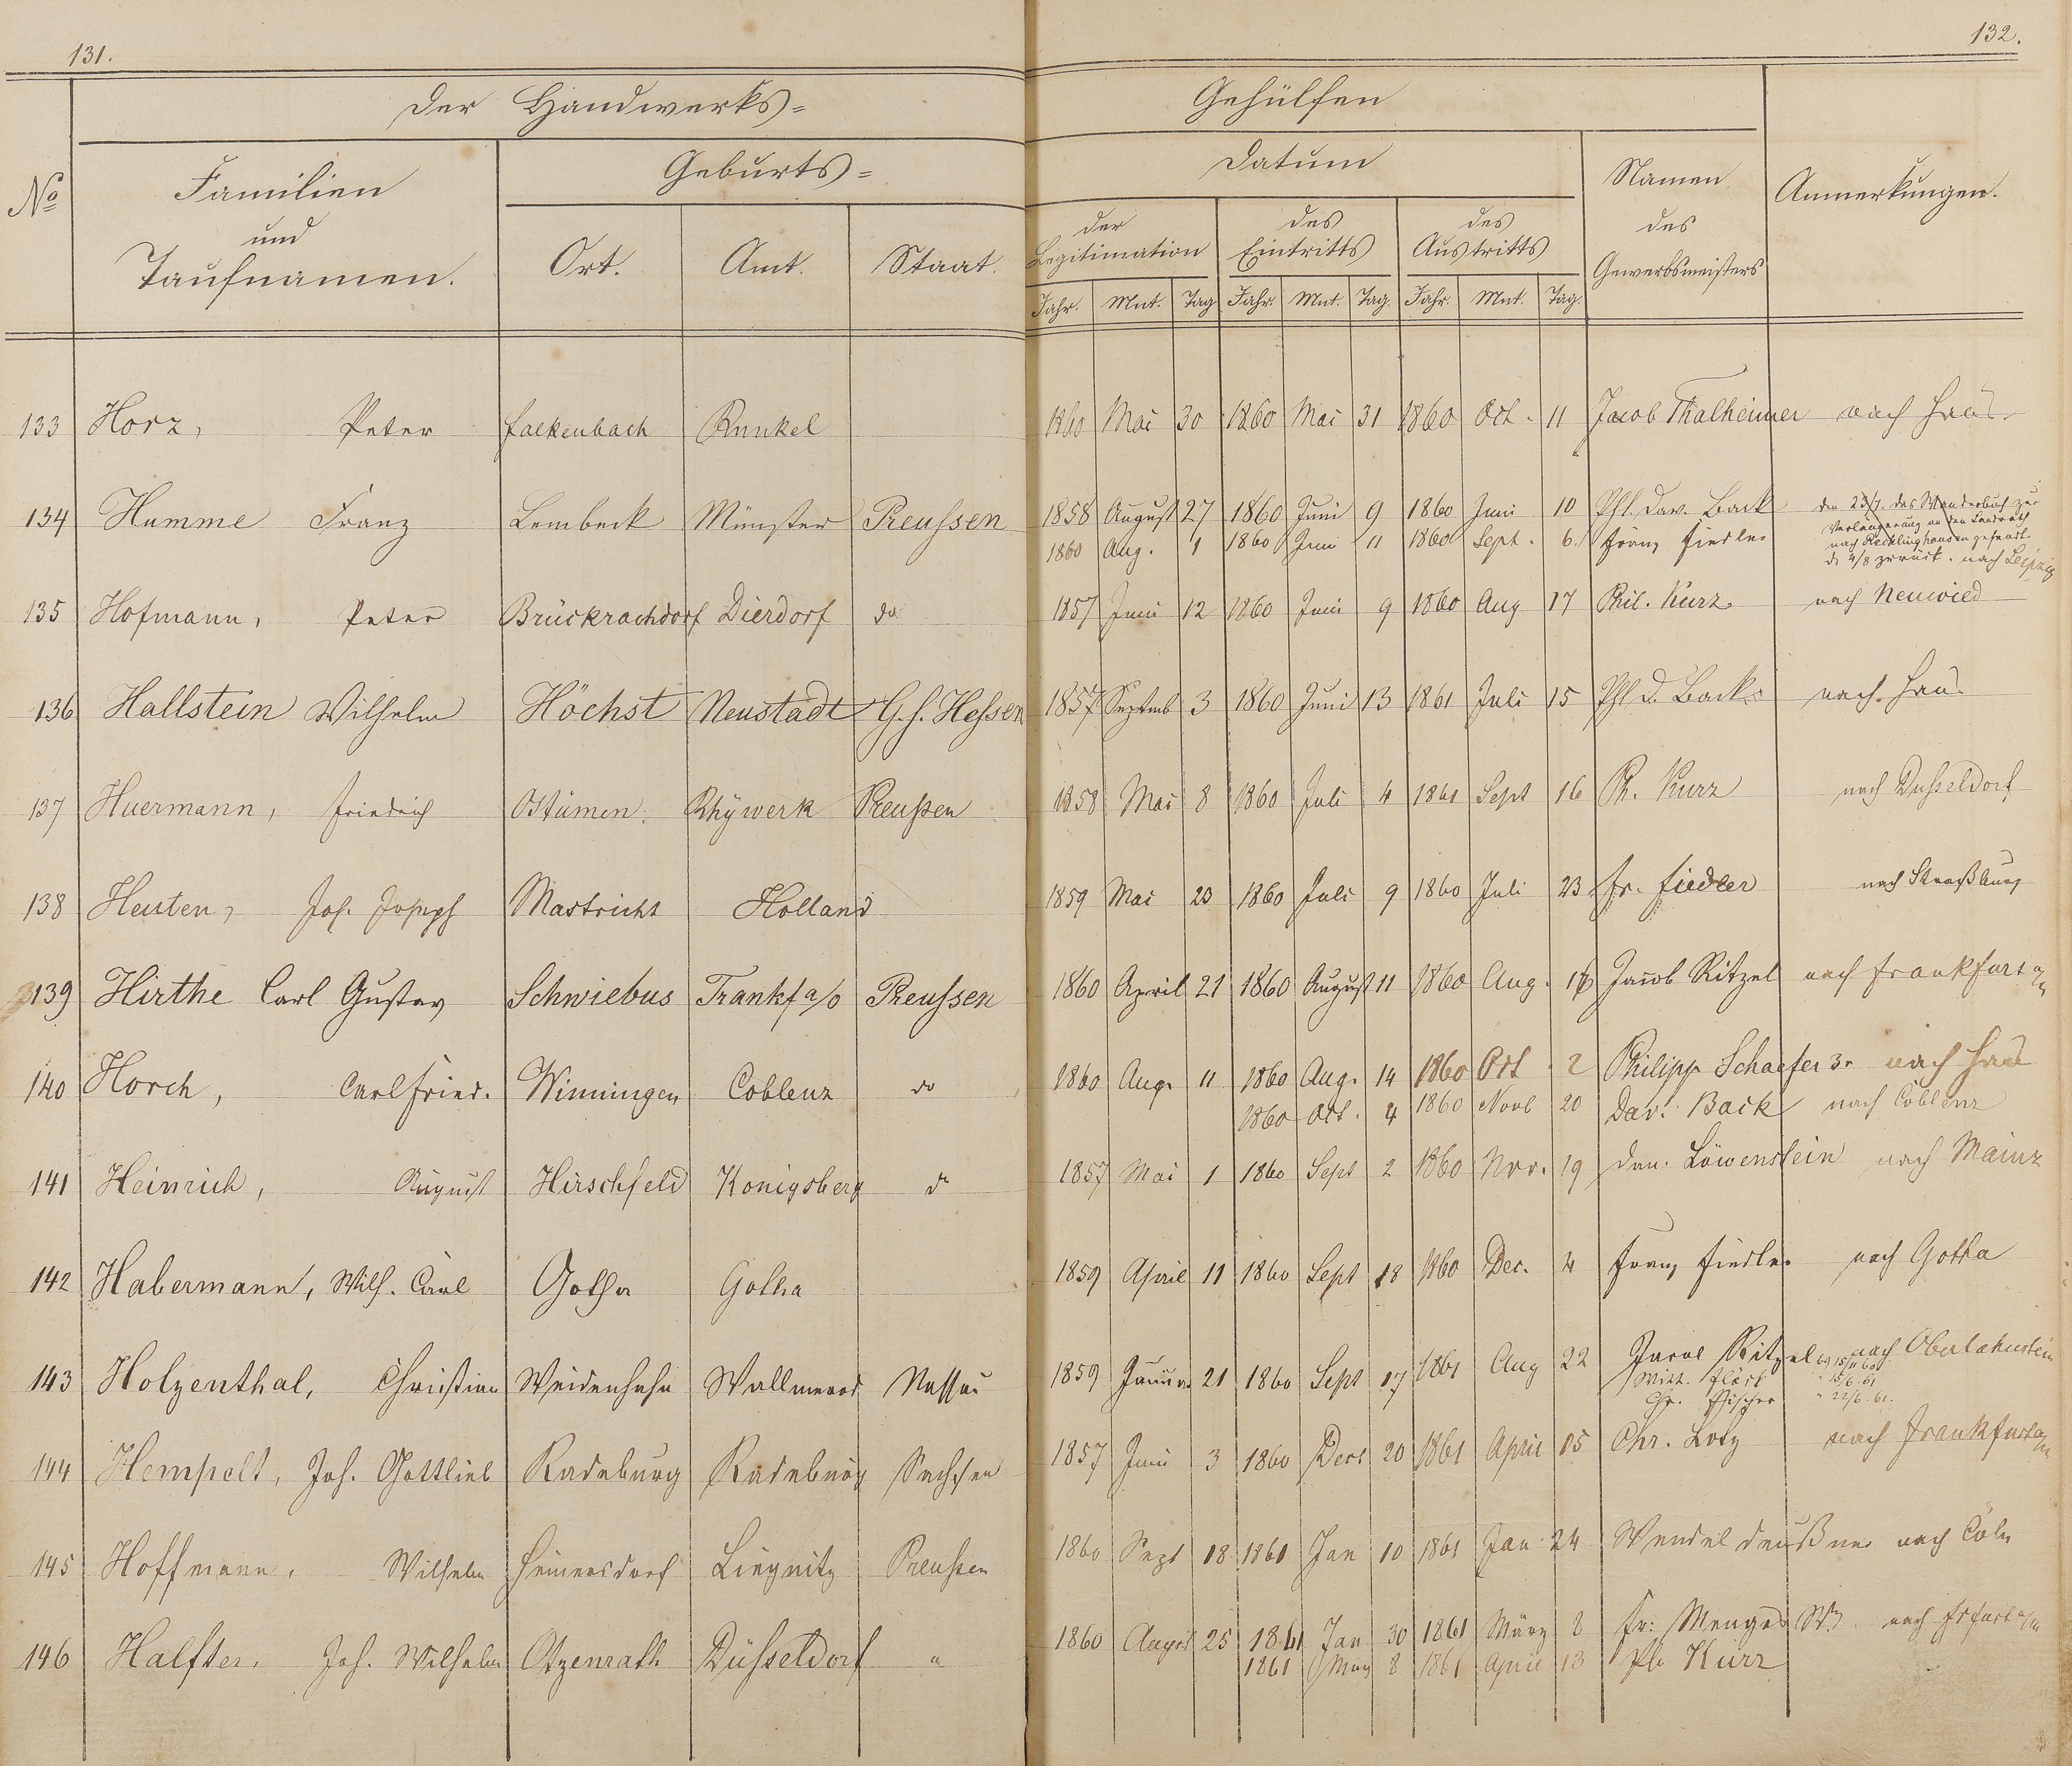 131.
132.
Der Handwerks=
Gehülfen
No
Familien
und
Taufnamen.
Geburts=
Ort.
Amt.
Staat.
Datum
der
Legitimation
des
Eintritts
des
Austritts
Jahr. Mnt. Tag Jahr. Mnt. Tag. Jahr. Mnt. Tag.
Namen
des
Gewerbsmeisters
Anmerkungen.
133 Horz, Peter Falkenbach Runkel 1860 Mai 30 1860 Mai 31 1860 Oct. 11 Jacob Thalheimer nach Haus
134 Humme Franz Lembeck Münster Preussen 1858 August 27 1860 Juni 9 1860 Juni 10 Phl. Dav. Back den 23/7. das Wanderbuch zur
Verlängerung an den Landrath
1860 Aug. 1 1860 Juni 11 1860 Sept. 6. Franz Fiedler nach Recklinghausen gesandt.
d. 4/8 zurück. nach Leipzig
135 Hofmann, Peter Brückrachdorf Dierdorf do 1857 Juni 12 1860 Juni 9 1860 Aug 17 Phil. Kurz nach Neuwied
136 Hallstein Wilhelm Höchst Neustadt G.H. Hessen 1857 Septmb 3 1860 Juni 13 1861 Juli 15 Phl. D. Back nach Haus
137 Huermann, Friedrich Ostümen Rhÿwerk Preußen 1858 Mai 8 1860 Juli 4 1861 Sept 16 Ph. Kurz nach Dusseldorf
138 Heuten, Joh. Joseph Mastricht Holland 1859 Mai 23 1860 Juli 9 1860 Juli 23 Fr. Fiedler nach Straßburg
139 Hirthe Carl Gustav Schwiebus Frankf a/o Preussen 1860 April 21 1860 August 11 1860 Aug. 16 Jacob Ritzel nach Frankfurt a/m
140 Horch, Carl Fried. Winningen Coblenz do 1860 Aug. 11 1860 Aug. 14 1860 Oct. 2 Philipp Schaefer 3r nach Haus
1860 Oct. 4 1860 Novb 20 Dav. Back nach Coblenz
141 Heinrich, August Hirschfeld Konigsberg do 1857 Mai 1 1860 Sept 2 1860 Nov. 19 Dan. Löwenstein nach Mainz
142 Habermann, Wilh. Carl Gotha Gotha 1859 April 11 1860 Sept 18 1860 Dec. 4 Franz Fiedler nach Gotha
143 Holzenthal, Christian Weidenhahn Wallmerod Nassau 1859 Januar 21 1860 Sept 17 1861 Aug 22 Jacob Ritzel 15/11 60 nach Oberlahnstein
15/6 61
Chr. Fischer " 22/6. 61.
144 Hempelt, Joh. Gottlieb Radeburg Radeburg Sachsen 1857 Juni 3 1860 Decb 20 1861 April 15 Chr. Lotz nach Frankfurt a/m
145 Hoffmann, Wilhelm Heinersdorf Liegnitz Preußen 1860 Sept 18 1861 Jan 10 1861 Jan 24 Wendel Deußner nach Cöln
146 Halfter, Joh. Wilhelm Otzenrath Düsseldorf " 1860 August 25 1861 Jan 30 1861 März 8 Fr: Menges Ww. nach Frfurt a/m
1861 März 8 1861 April 13 Ph Kurz